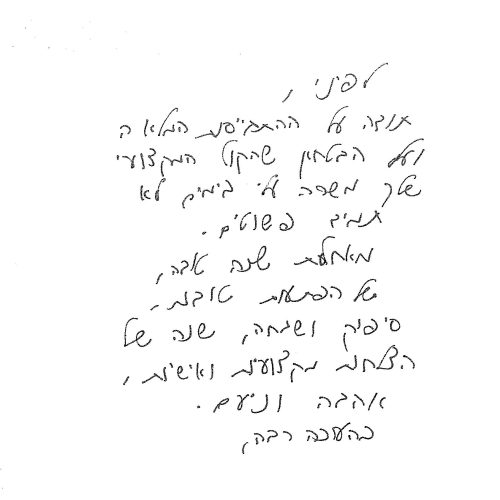 לפיני,
תודה על ההתגייסות המלאה
ועל הבטחון שהקול המקצועי
שלך משרה עלי בימים לא
תמיד פשוטים.
מאחלת שנה טובה,
של הפתעות טובות,
סיפוק ושמחה, שנה של
הצלחות מקצועיות ואישיות,
אהבה ונעים.
בהערכה רבה,